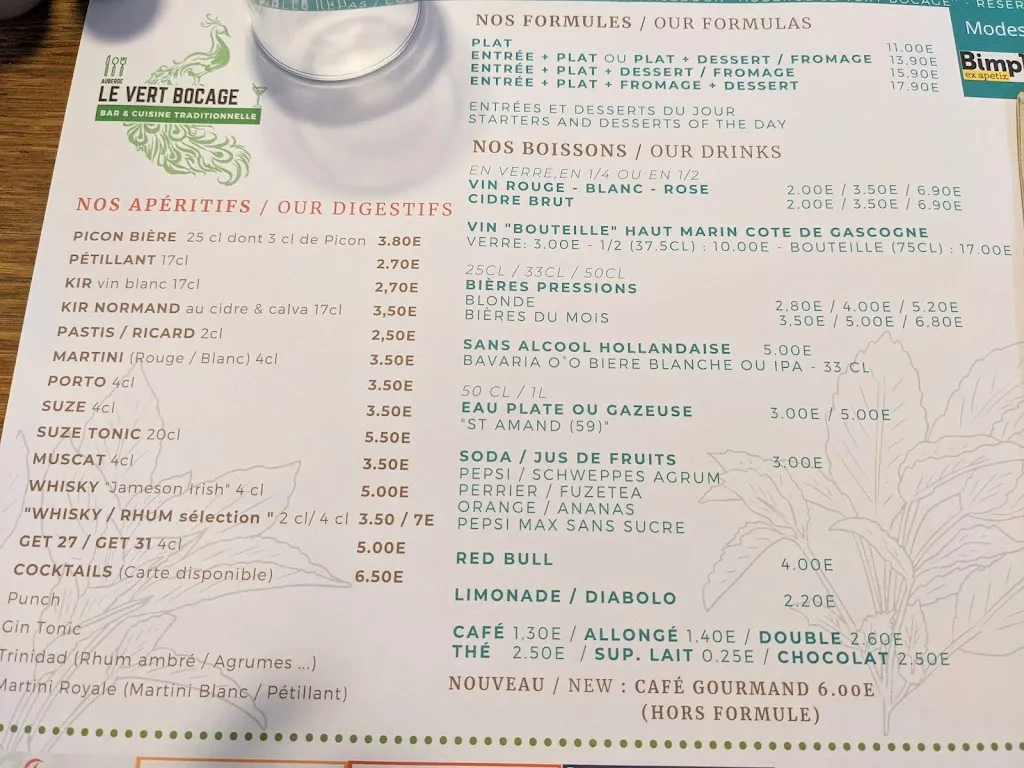 AUBERGE
LE VERT BOCAGE
BAR & CUISINE TRADITIONNELLE
NOS APÉRITIFS / OUR DIGESTIFS
PICON BIÈRE 25 cl dont 3 cl de Picon 3.80E
PÉTILLANT 17cl 2.70E
KIR vin blanc 17cl 2,70E
KIR NORMAND au cidre & calva 17cl 3,50E
PASTIS / RICARD 2cl 2,50E
MARTINI (Rouge / Blanc) 4cl 3.50E
PORTO 4cl 3.50E
SUZE 4cl 3.50E
SUZE TONIC 20cl 5.50E
MUSCAT 4cl 3.50E
WHISKY "Jameson Irish" 4 cl 5.00E
"WHISKY / RHUM sélection " 2 cl/ 4 cl 3.50 / 7E
GET 27 / GET 31 4cl 5.00E
COCKTAILS (Carte disponible) 6.50E
Punch
Gin Tonic
Trinidad (Rhum ambré / Agrumes ...)
Martini Royale (Martini Blanc / Pétillant)
NOS FORMULES / OUR FORMULAS
PLAT 11.00E
ENTRÉE + PLAT OU PLAT + DESSERT / FROMAGE 13,90E
ENTRÉE + PLAT + DESSERT / FROMAGE 15,90E
ENTRÉE + PLAT + FROMAGE + DESSERT 17.90E
ENTRÉES ET DESSERTS DU JOUR
STARTERS AND DESSERTS OF THE DAY
NOS BOISSONS / OUR DRINKS
EN VERRE,EN 1/4 OU EN 1/2
VIN ROUGE - BLANC - ROSE 2.00E / 3.50E / 6.90E
CIDRE BRUT 2.00E / 3.50E / 6.90E
VIN "BOUTEILLE" HAUT MARIN COTE DE GASCOGNE
VERRE: 3.00E - 1/2 (37,5CL) : 10.00E - BOUTEILLE (75CL) : 17.00E
25CL / 33CL / 50CL
BIÈRES PRESSIONS
BLONDE 2,80E / 4.00E / 5.20E
BIÈRES DU MOIS 3,50E / 5.00E / 6,80E
SANS ALCOOL HOLLANDAISE 5.00E
BAVARIA 0°0 BIERE BLANCHE OU IPA - 33 CL
50 CL / 1L
EAU PLATE OU GAZEUSE 3.00E / 5.00E
"ST AMAND (59)"
SODA / JUS DE FRUITS 3.00E
PEPSI / SCHWEPPES AGRUM
PERRIER / FUZETEA
ORANGE / ANANAS
PEPSI MAX SANS SUCRE
RED BULL 4.00E
LIMONADE / DIABOLO 2.20E
CAFÉ 1,30E / ALLONGÉ 1.40E / DOUBLE 2.60E
THÉ 2.50E / SUP. LAIT 0.25E / CHOCOLAT 2.50E
NOUVEAU / NEW : CAFÉ GOURMAND 6.00E
(HORS FORMULE)
Modes
Bimpl
ex apetiz